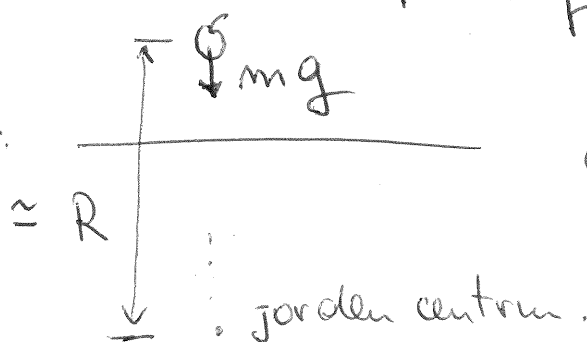 mg
≃ R
jorden centrum.